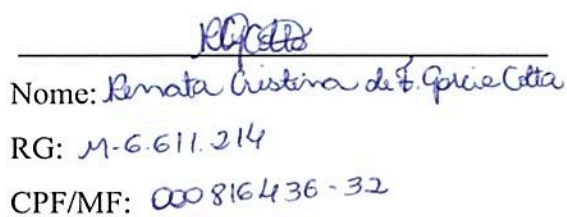 RGCotta
Nome: Renata Cristina de F. Garcia Cotta
RG: M-6.611.214
CPF/MF: 000816436-32